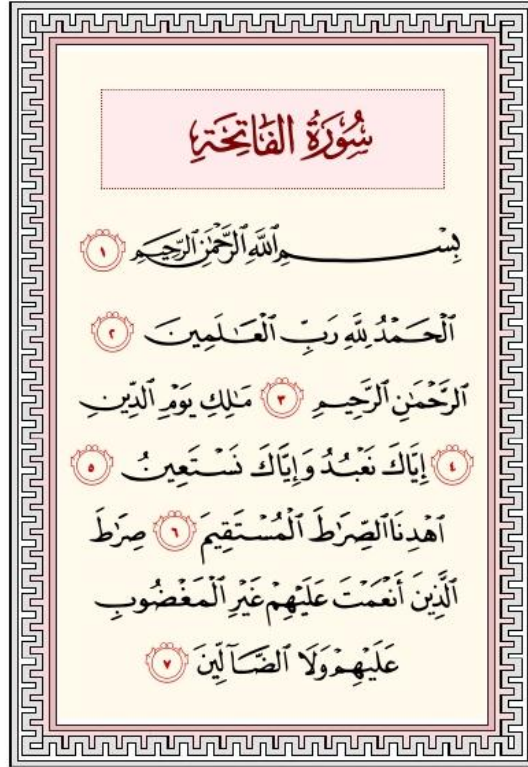 سُورَةُ الفَاتِحَةِ
بِسْمِ ٱللَّهِ ٱلرَّحْمَٰنِ ٱلرَّحِيمِ ١
ٱلْحَمْدُ لِلَّهِ رَبِّ ٱلْعَـٰلَمِينَ ٢
ٱلرَّحْمَـٰنِ ٱلرَّحِيمِ ٣ مَـٰلِكِ يَوْمِ ٱلدِّينِ
٤ إِيَّاكَ نَعْبُدُ وَإِيَّاكَ نَسْتَعِينُ ٥
ٱهْدِنَا ٱلصِّرَٰطَ ٱلْمُسْتَقِيمَ ٦ صِرَٰطَ
ٱلَّذِينَ أَنْعَمْتَ عَلَيْهِمْ غَيْرِ ٱلْمَغْضُوبِ
عَلَيْهِمْ وَلَا ٱلضَّآلِّينَ ٧